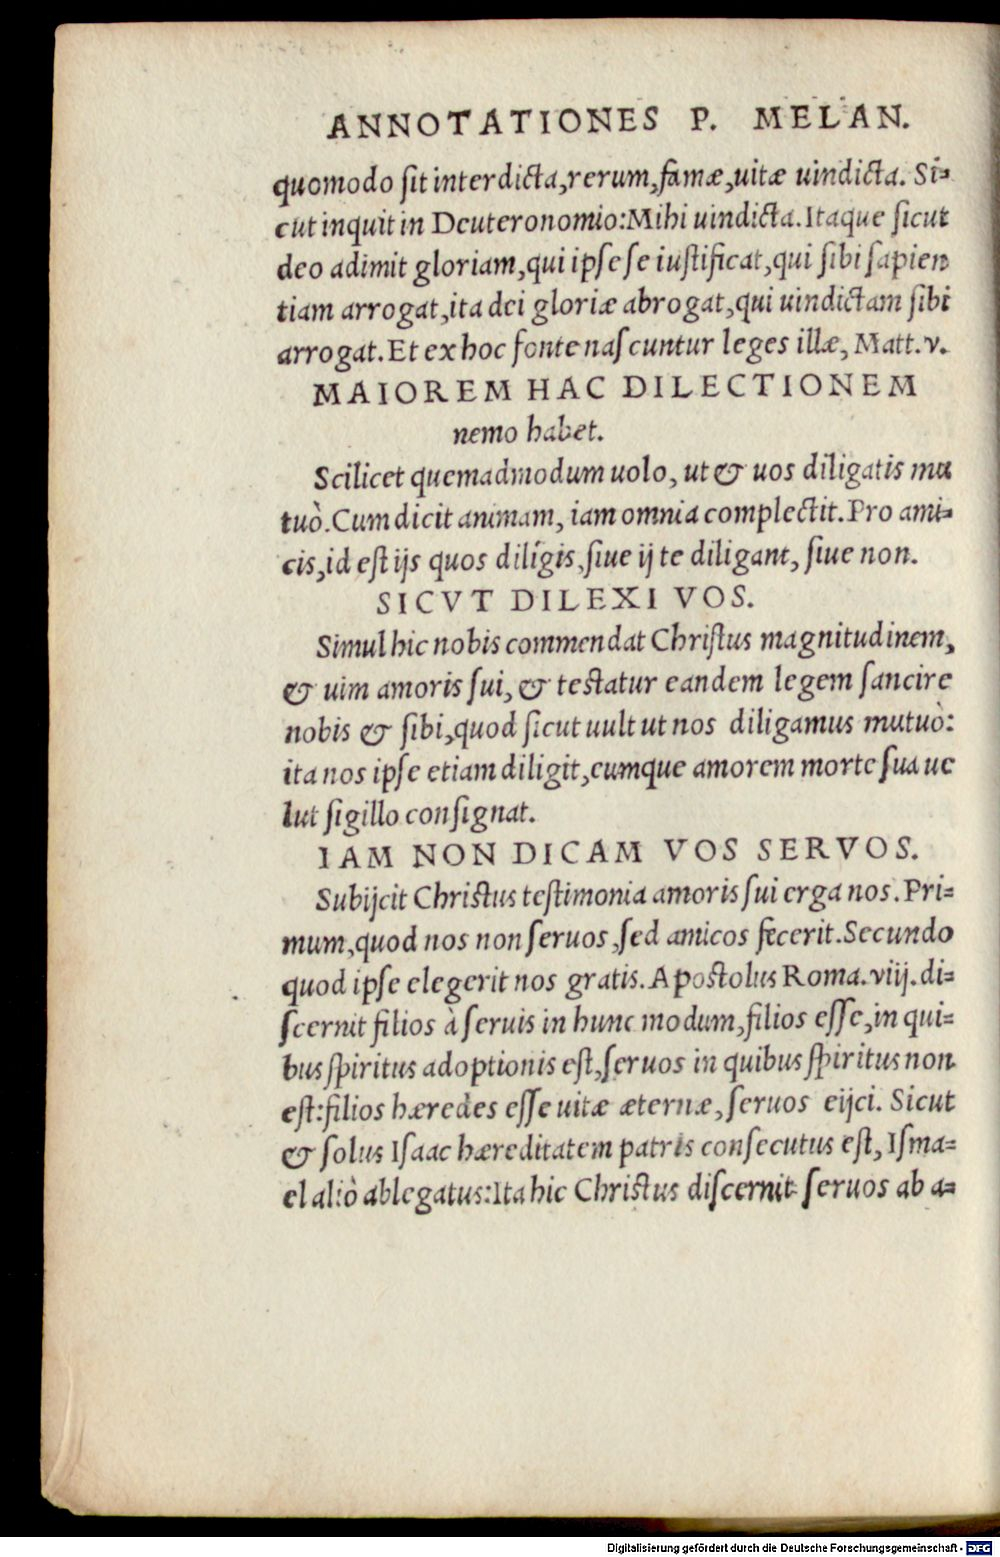 ANNOTATIONES P. MELAN.
quomodo ſit interdicta,rerum,famæ,uitæ uindicta. Si-
cut inquit in Deuteronomio:Mihi uindicta.Itaque ſicut
deo adimit gloriam,qui ipſe ſe iuſtificat,qui ſibi ſapien
tiam arrogat,ita dei gloriæ abrogat,qui uindictam ſibi
arrogat.Et ex hoc fonte naſcuntur leges illæ, Matt.v.
MAIOREM HAC DILECTIONEM
nemo habet.
Scilicet quemadmodum uolo, ut & uos diligatis mu
tuò.Cum dicit animam, iam omnia complectit.Pro ami-
cis,id eſt ijs quos diligis,ſiue ij te diligant, ſiue non.
SICVT DILEXI VOS.
Simul hic nobis commendat Chriſtus magnitudinem,
& uim amoris ſui, & teſtatur eandem legem ſancire
nobis & ſibi,quod ſicut uult ut nos diligamus mutuò:
ita nos ipſe etiam diligit,eumque amorem morte ſua ue
lut ſigillo conſignat.
IAM NON DICAM VOS SERVOS.
Subijcit Chriſtus teſtimonia amoris ſui erga nos.Pri-
mum,quod nos non ſeruos,ſed amicos fecerit.Secundo
quod ipſe elegerit nos gratis.Apoſtolus Roma.viij.di-
ſcernit filios à ſeruis in hunc modum,filios eſſe,in qui-
bus ſpiritus adoptionis eſt,ſeruos in quibus ſpiritus non
eſt:filios hæredes eſſe uitæ æternæ,ſeruos eijci. Sicut
& ſolus Iſaac hæreditatem patris conſecutus eſt, Iſma-
el aliò ablegatus:Ita hic Chriſtus diſcernit ſeruos ab a-
Digitalisierung gefördert durch die Deutsche Forschungsgemeinschaft - DFG